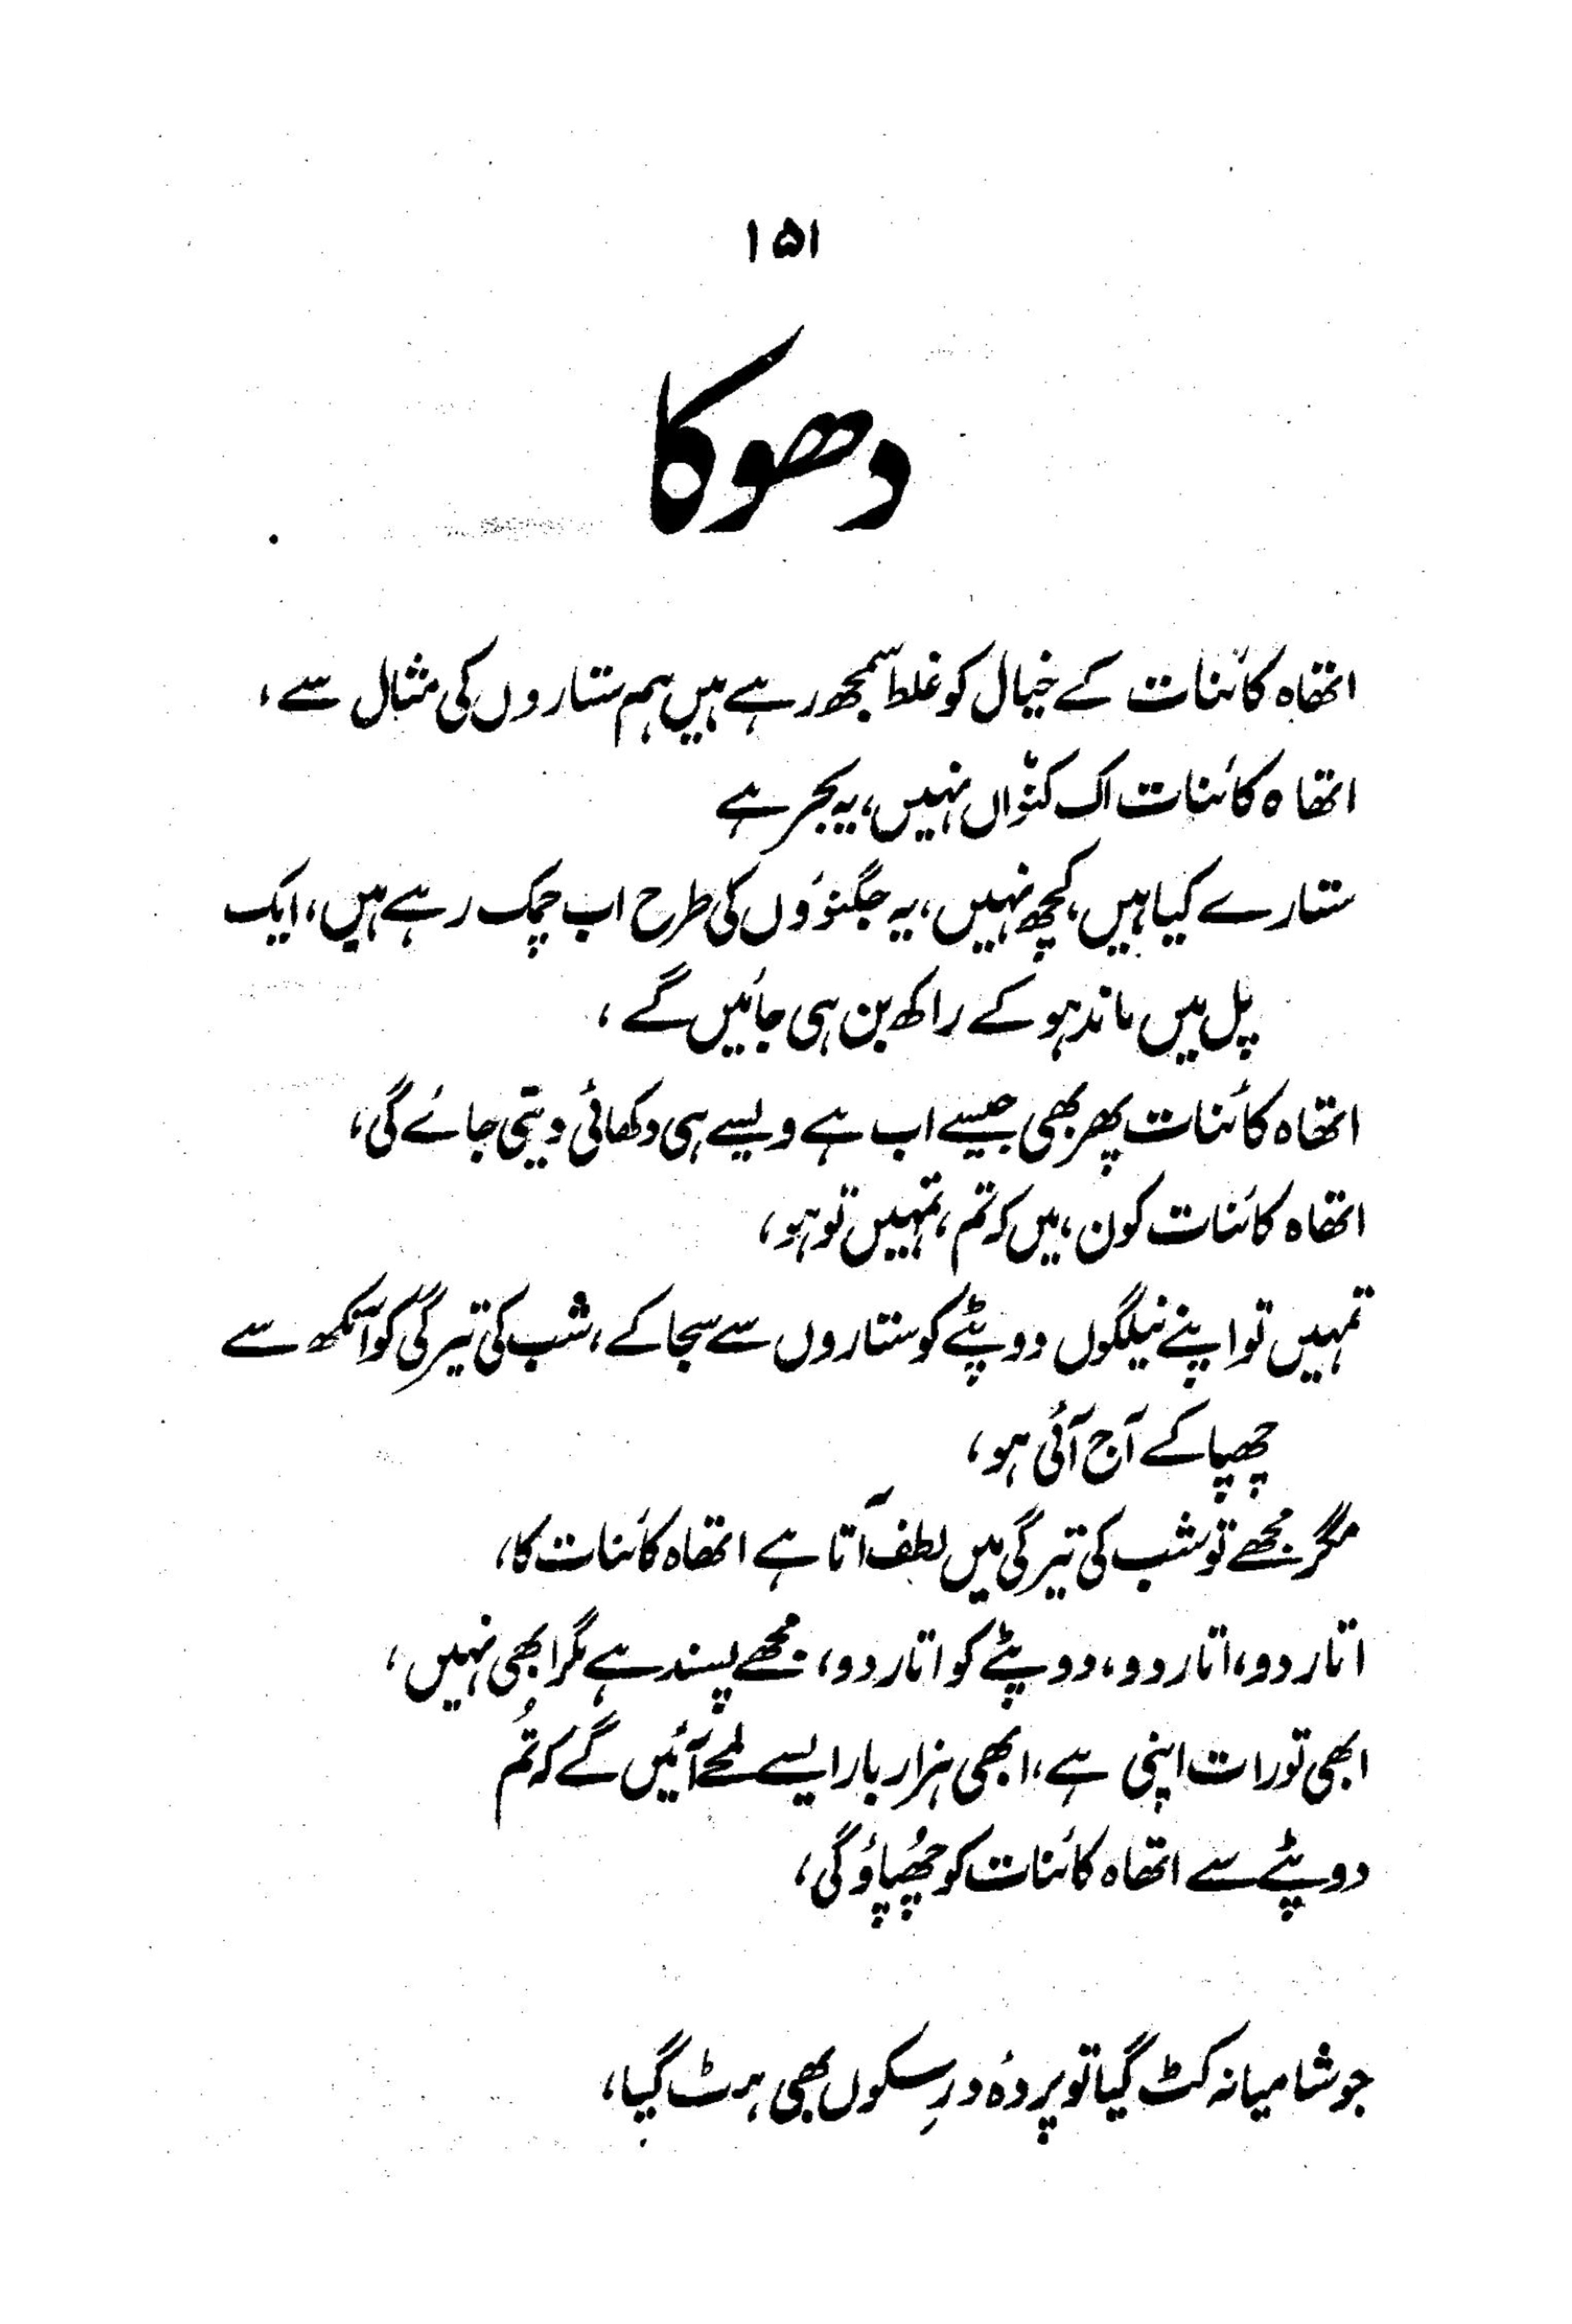 ۱۵۱
دھوکا
اتھاہ کائنات کے خیال کو غلط سمجھ رہے ہیں ہم ستاروں کی مثال سے،
اتھاہ کائنات اک کنوٗاں نہیں، یہ بحر ہے
ستارے کیا ہیں، کچھ نہیں، یہ جگنوؤں کی طرح اب چمک رہے ہیں، ایک
پل میں ماند ہو کے راکھ بن ہی جائیں گے،
اتھاہ کائنات پھر بھی جیسے اب ہے ویسے ہی دکھائی دیتی جائے گی،
اتھاہ کائنات کون، میں کہ تم، تمہیں تو ہو،
تمہیں تو اپنے نیلگوں دوپٹے کو ستاروں سے سجا کے، شب کی تیرگی کو آنکھ سے
چھپا کے آج آئی ہو،
مگر مجھے تو شب کی تیرگی میں لطف آتا ہے اتھاہ کائنات کا،
اتار دو، اتار دو، دوپٹے کو اتار دو، مجھے پسند ہے مگر ابھی نہیں،
ابھی تو رات اپنی ہے، ابھی ہزار بار ایسے لمحے آئیں گے کہ تُم
دوپٹے سے اتھاہ کائنات کو چھُپاؤ گی،
جو شامیانہ کٹ گیا تو پردۂ درِ سکوں بھی ہٹ گیا،